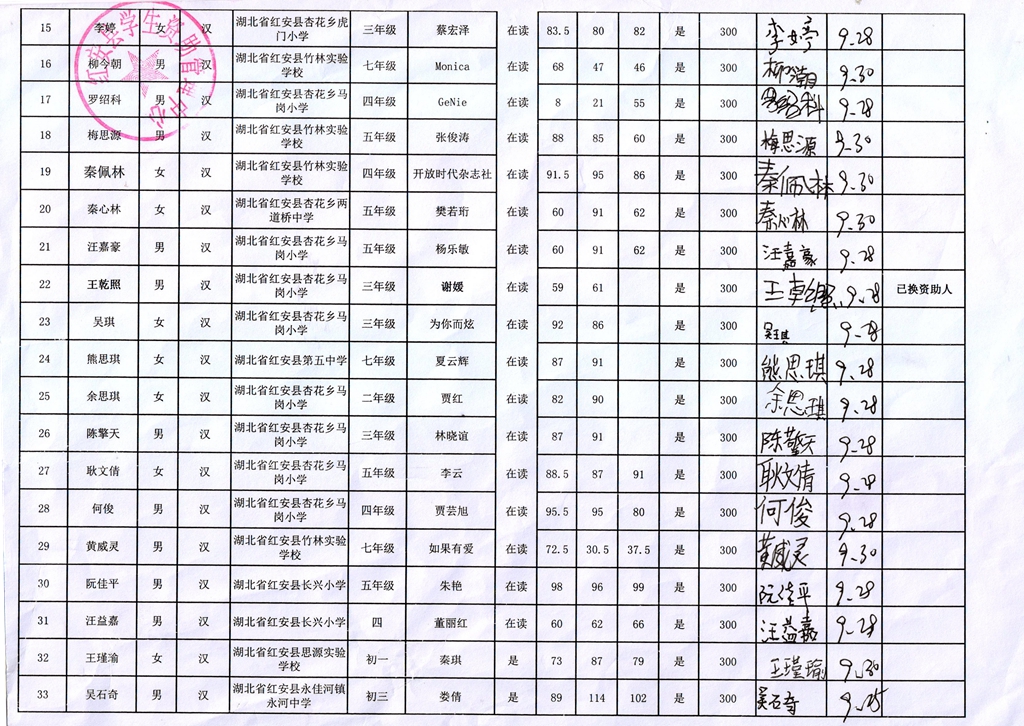 15 李婷 女 汉 湖北省红安县杏花乡虎门小学 三年级 蔡宏泽 在读 83.5 80 82 是 300 李婷 9.28
16 柳今朝 男 汉 湖北省红安县竹林实验学校 七年级 Monica 在读 68 47 46 是 300 9.30
17 罗绍科 男 汉 湖北省红安县杏花乡马岗小学 四年级 GeNie 在读 8 21 55 是 300 罗绍科 9.28
18 梅思源 男 汉 湖北省红安县竹林实验学校 五年级 张俊涛 在读 88 85 60 是 300 梅思源 9.30
19 秦佩林 女 汉 湖北省红安县竹林实验学校 四年级 开放时代杂志社 在读 91.5 95 86 是 300 秦佩林 9.30
20 秦心林 女 汉 湖北省红安县杏花乡两道桥中学 五年级 樊若珩 在读 60 91 62 是 300 秦心林 9.30
21 汪嘉豪 男 汉 湖北省红安县杏花乡马岗小学 五年级 杨乐敏 在读 60 91 62 是 300 汪嘉豪 9.28
22 王乾照 男 汉 湖北省红安县杏花乡马岗小学 三年级 谢媛 在读 59 61 是 300 王乾照 9.28 已换资助人
23 吴琪 女 汉 湖北省红安县杏花乡马岗小学 三年级 为你而炫 在读 92 86 是 300 吴琪 9.28
24 熊思琪 女 汉 湖北省红安县第五中学 七年级 夏云辉 在读 87 91 是 300 熊思琪 9.28
25 余思琪 女 汉 湖北省红安县杏花乡马岗小学 二年级 贾红 在读 82 90 是 300 余思琪 9.28
26 陈擎天 男 汉 湖北省红安县杏花乡马岗小学 三年级 林晓谊 在读 87 91 是 300 陈擎天 9.28
27 耿文倩 女 汉 湖北省红安县杏花乡马岗小学 五年级 李云 在读 88.5 87 91 是 300 耿文倩 9.28
28 何俊 男 汉 湖北省红安县杏花乡马岗小学 四年级 贾芸旭 在读 95.5 95 80 是 300 何俊 9.28
29 黄威灵 男 汉 湖北省红安县竹林实验学校 七年级 如果有爱 在读 72.5 30.5 37.5 是 300 黄威灵 9.30
30 阮佳平 男 汉 湖北省红安县长兴小学 五年级 朱艳 在读 98 96 99 是 300 阮佳平 9.28
31 汪益嘉 男 汉 湖北省红安县长兴小学 四 董丽红 在读 60 62 66 是 300 汪益嘉 9.28
32 王瑾瑜 女 汉 湖北省红安县思源实验学校 初一 秦琪 是 73 87 79 是 300 王瑾瑜 9.30
33 吴石奇 男 汉 湖北省红安县永佳河镇永河中学 初三 娄倩 是 89 114 102 是 300 吴石奇 9.25
红安县学生资助管理中心